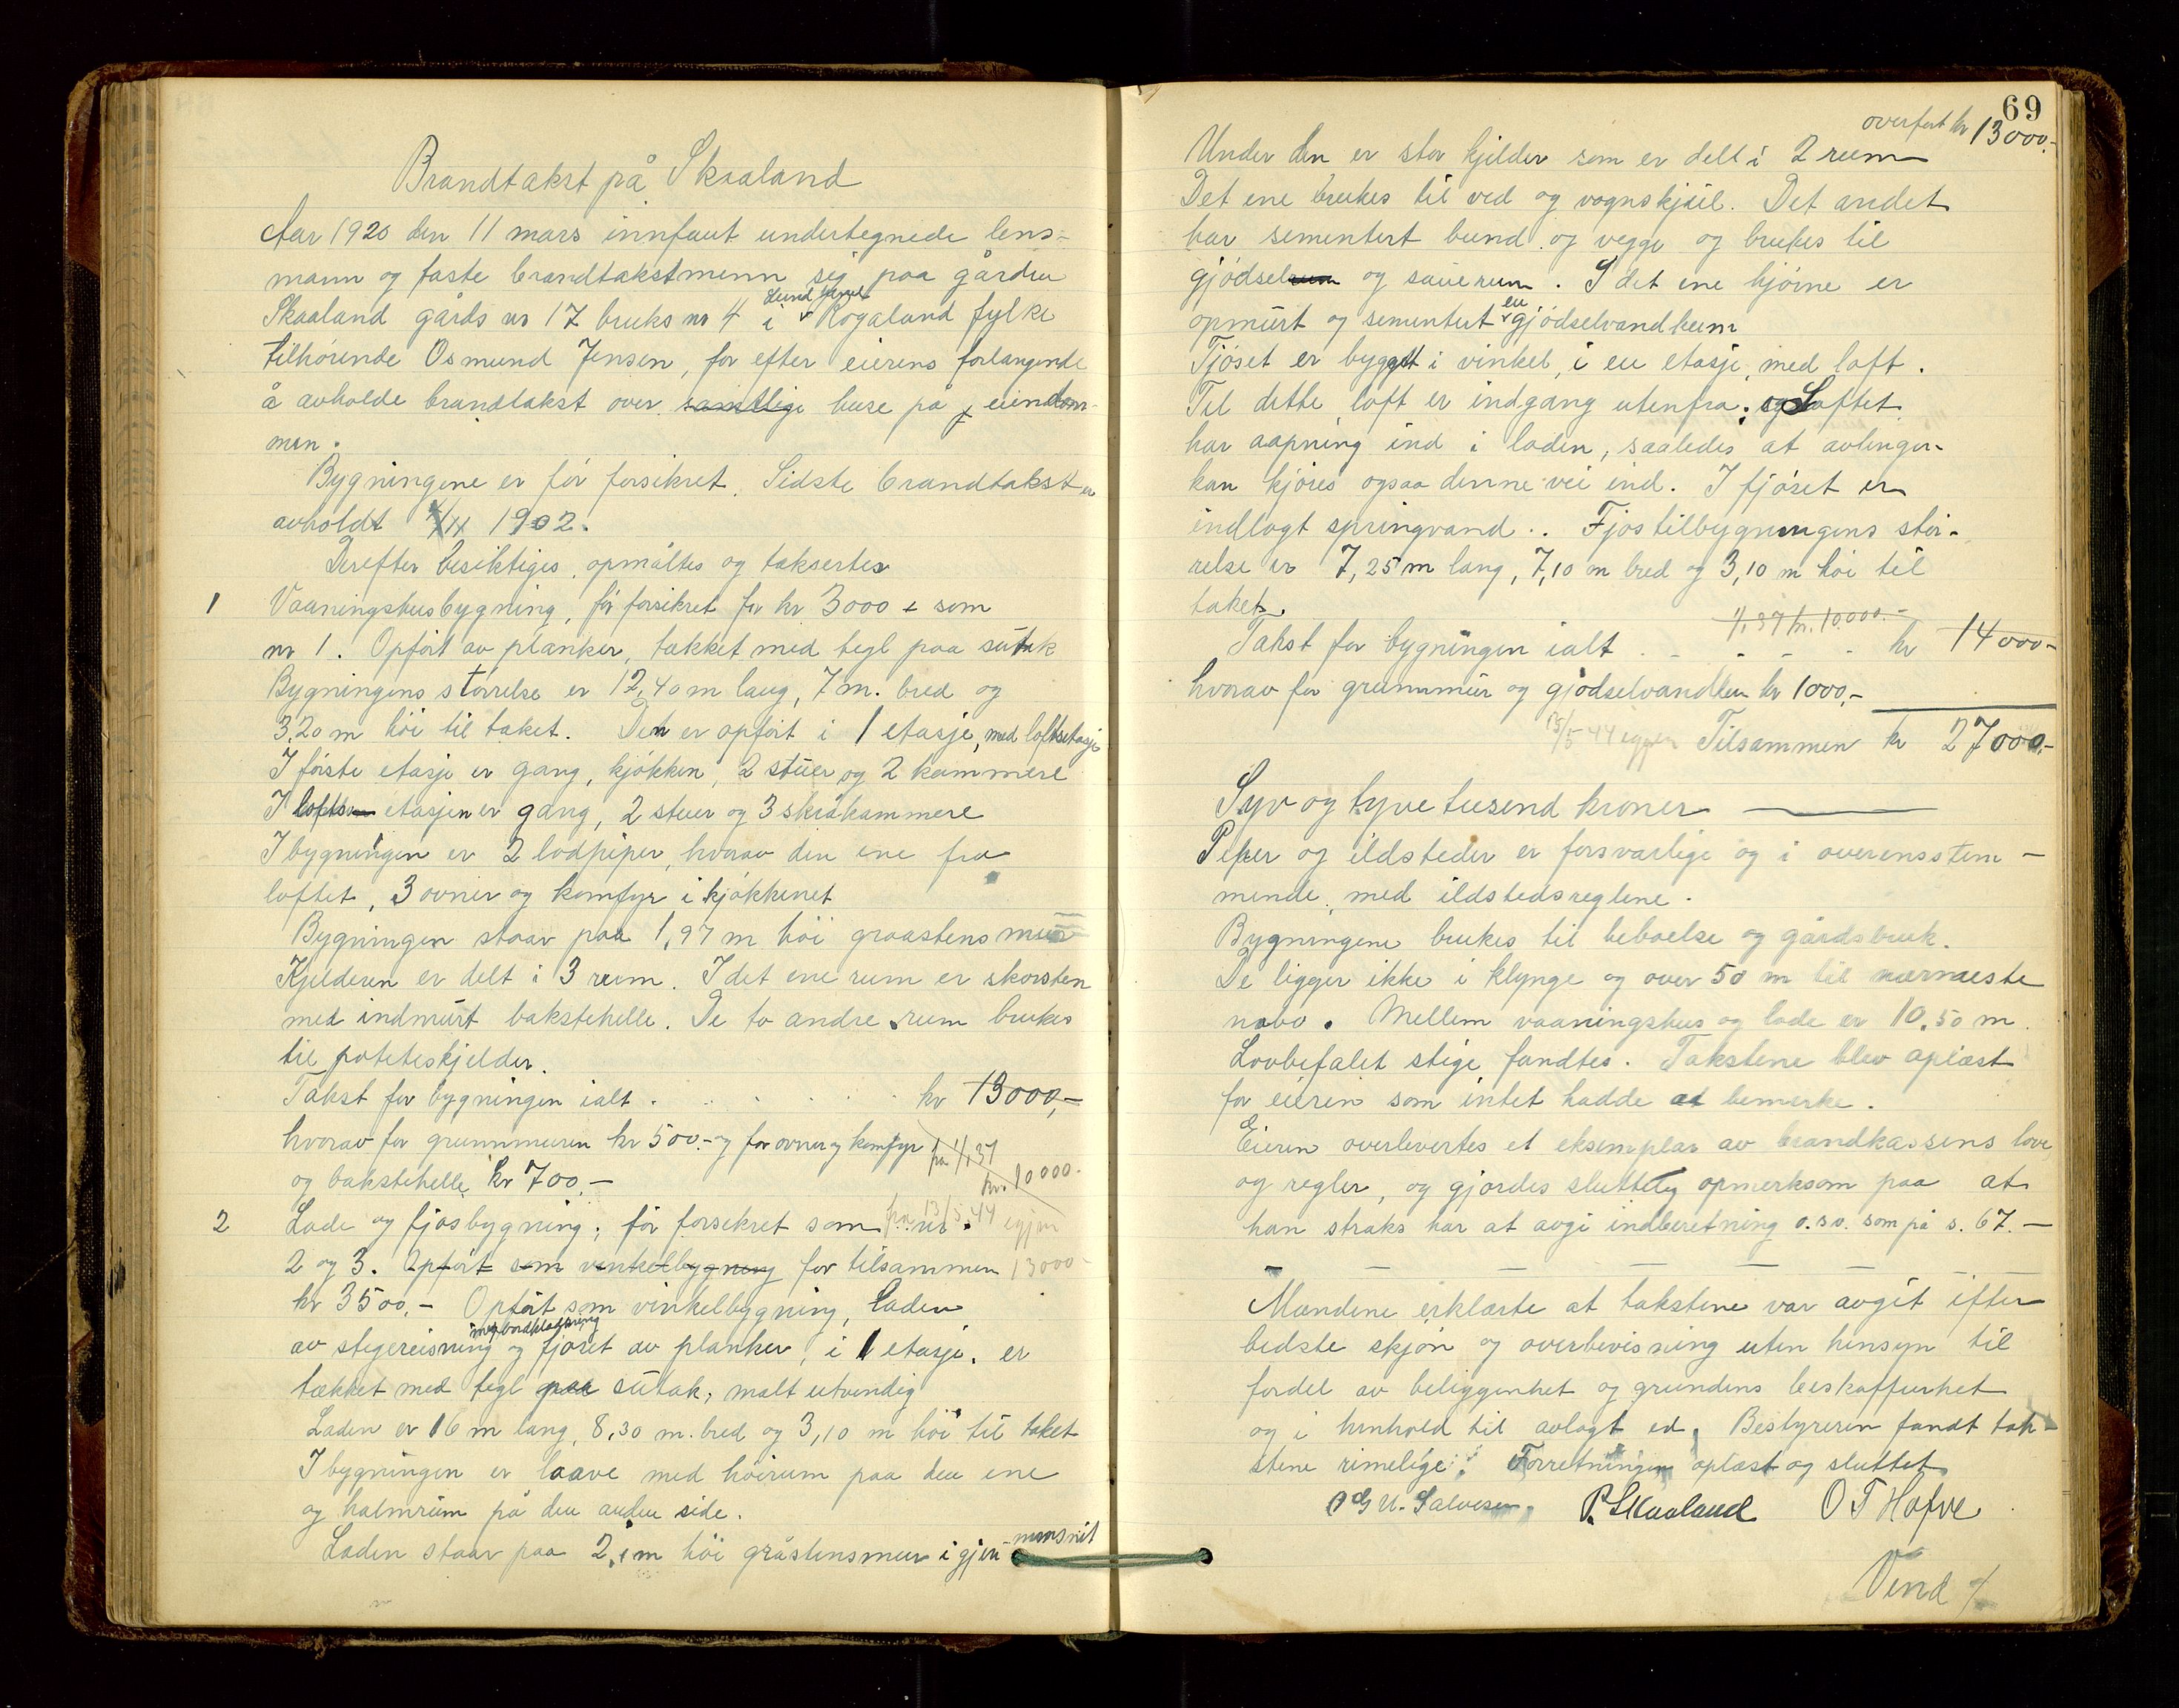 Brandtakst på Skaaland
Aar 1920 den 11 mars innfant undertegnede lens-
mann og faste brandtakstmenn sig paa gården
Skaaland gårds nr 17 bruks nr 4 i Lund herred Rogaland fylke
tilhörende Osmund Jensen, for efter eierens forlangende
å avholde brandtakst over samtlige huse på eiendom-
men.
Bygningene er för forsikret. Sidste brandtakst er
avholdt 1902.
Derefter besiktiges, opmåltes og taksertes
1 Vaaningshusbygning, för forsikret for kr 3000 som
nr 1. Opfört av planker, tækket med tegl paa sutak
Bygningens störrelse er 12,40 m lang, 7 m. bred og
3,20 m höi til taket. Den er opfört i 1 etasje, med loftsetasje
I förste etasje er gang, kjökken, 2 stuer og 2 kammere
I lofts etasjen er gang, 2 stuer og 3 skråkammere
I bygningen er 2 lodpiper, hvorav den ene fra
loftet, 3 ovner og komfyr i kjökkenet
Bygningen staar paa 1,97 m höi graastensmur
Kjelderen er delt i 3 rum. I det ene rum er skorsten
med indmurt bakstehelle. De to andre rum brukes
til poteteskjelder.
Takst for bygningen ialt . . . . . . kr 13000,-
hvorav for grunnmuren kr 500.- og for ovner og komfyr
fra 1/1 37
og bakstehelle kr 700.-
kr. 10000.
2 Lade og fjösbygning; för forsekret som nr.
fra 13/5 44 igjen
2 og 3. Opfört som vinkelbygning for tilsammen
13000-
kr 3500.- Opfört som vinkelbygning, laden
av stegereisning med bordklædning og fjöset av planker, i 1 etasje. er
tækket med tegl paa sutak, malt utvendig
Laden er 16 m lang, 8,30 m. bred og 3,10 m höi til taket
I bygningen er laave med höirum paa den ene
og halmrum på den anden side.
Laden staar paa 2,1 m höi gråstensmur i gjen-nemsnit
69
overfört kr 13000.-
Under den er stor kjelder som er delt i 2 rum
Det ene brukes til ved og vognskjul. Det andet
har sementert bund og vegge og brukes til
gjödselrum og sauerum. I det ene hjörne er
opmurt og sementert en gjödselvandkum
Fjöset er bygget i vinkel, i en etasje, med loft.
Til dette loft er indgang utenfra. og Loftet
har aapning ind i laden, saaledes at avlingen
kan kjöres ogsaa denne vei ind. I fjöset er
indlagt springvand.. Fjöstilbygningens stör-
relse er 7,25 m lang, 7,10 m bred og 3,10 m höi til
taket.
1/1 37 kr. 10000.-
Takst for bygningen ialt . - - - - kr 14000-
hvorav for grunnmur og gjödselvandkum kr 1000,-
13/5 44 igjen Tilsammen kr 27000.-
Syv og tyve tusend kroner
Peper og ildsteder er forsvarlige og i overensstem-
mende, med ildstedsreglene.
Bygningene brukes til beboelse og gårdsbruk.
De ligger ikke i klynge og over 50 m til nærmeste
nabo. Mellem vaaningshus og lade er 10,50 m.
Lovbefalet stige fandtes. Takstene blev oplæst
for eieren som intet hadde at bemerke.
Eieren overlevertes et eksemplar av brandkassens love
og regler, og gjordes sluttelig opmerksom paa at
han straks har at avgi indberetning o.s.v. som på s. 67.-
Mændene erklærte at takstene var avgit efter
bedste skjön og overbevisning uten hensyn til
fordel av beliggenhet og grundens beskaffenhet
og i henhold til avlagt ed. Bestyreren fandt tak-
stene rimelige. Forretningen oplæst og sluttet
U. Salvesen P. Skaaland O T Hofve
Vend /